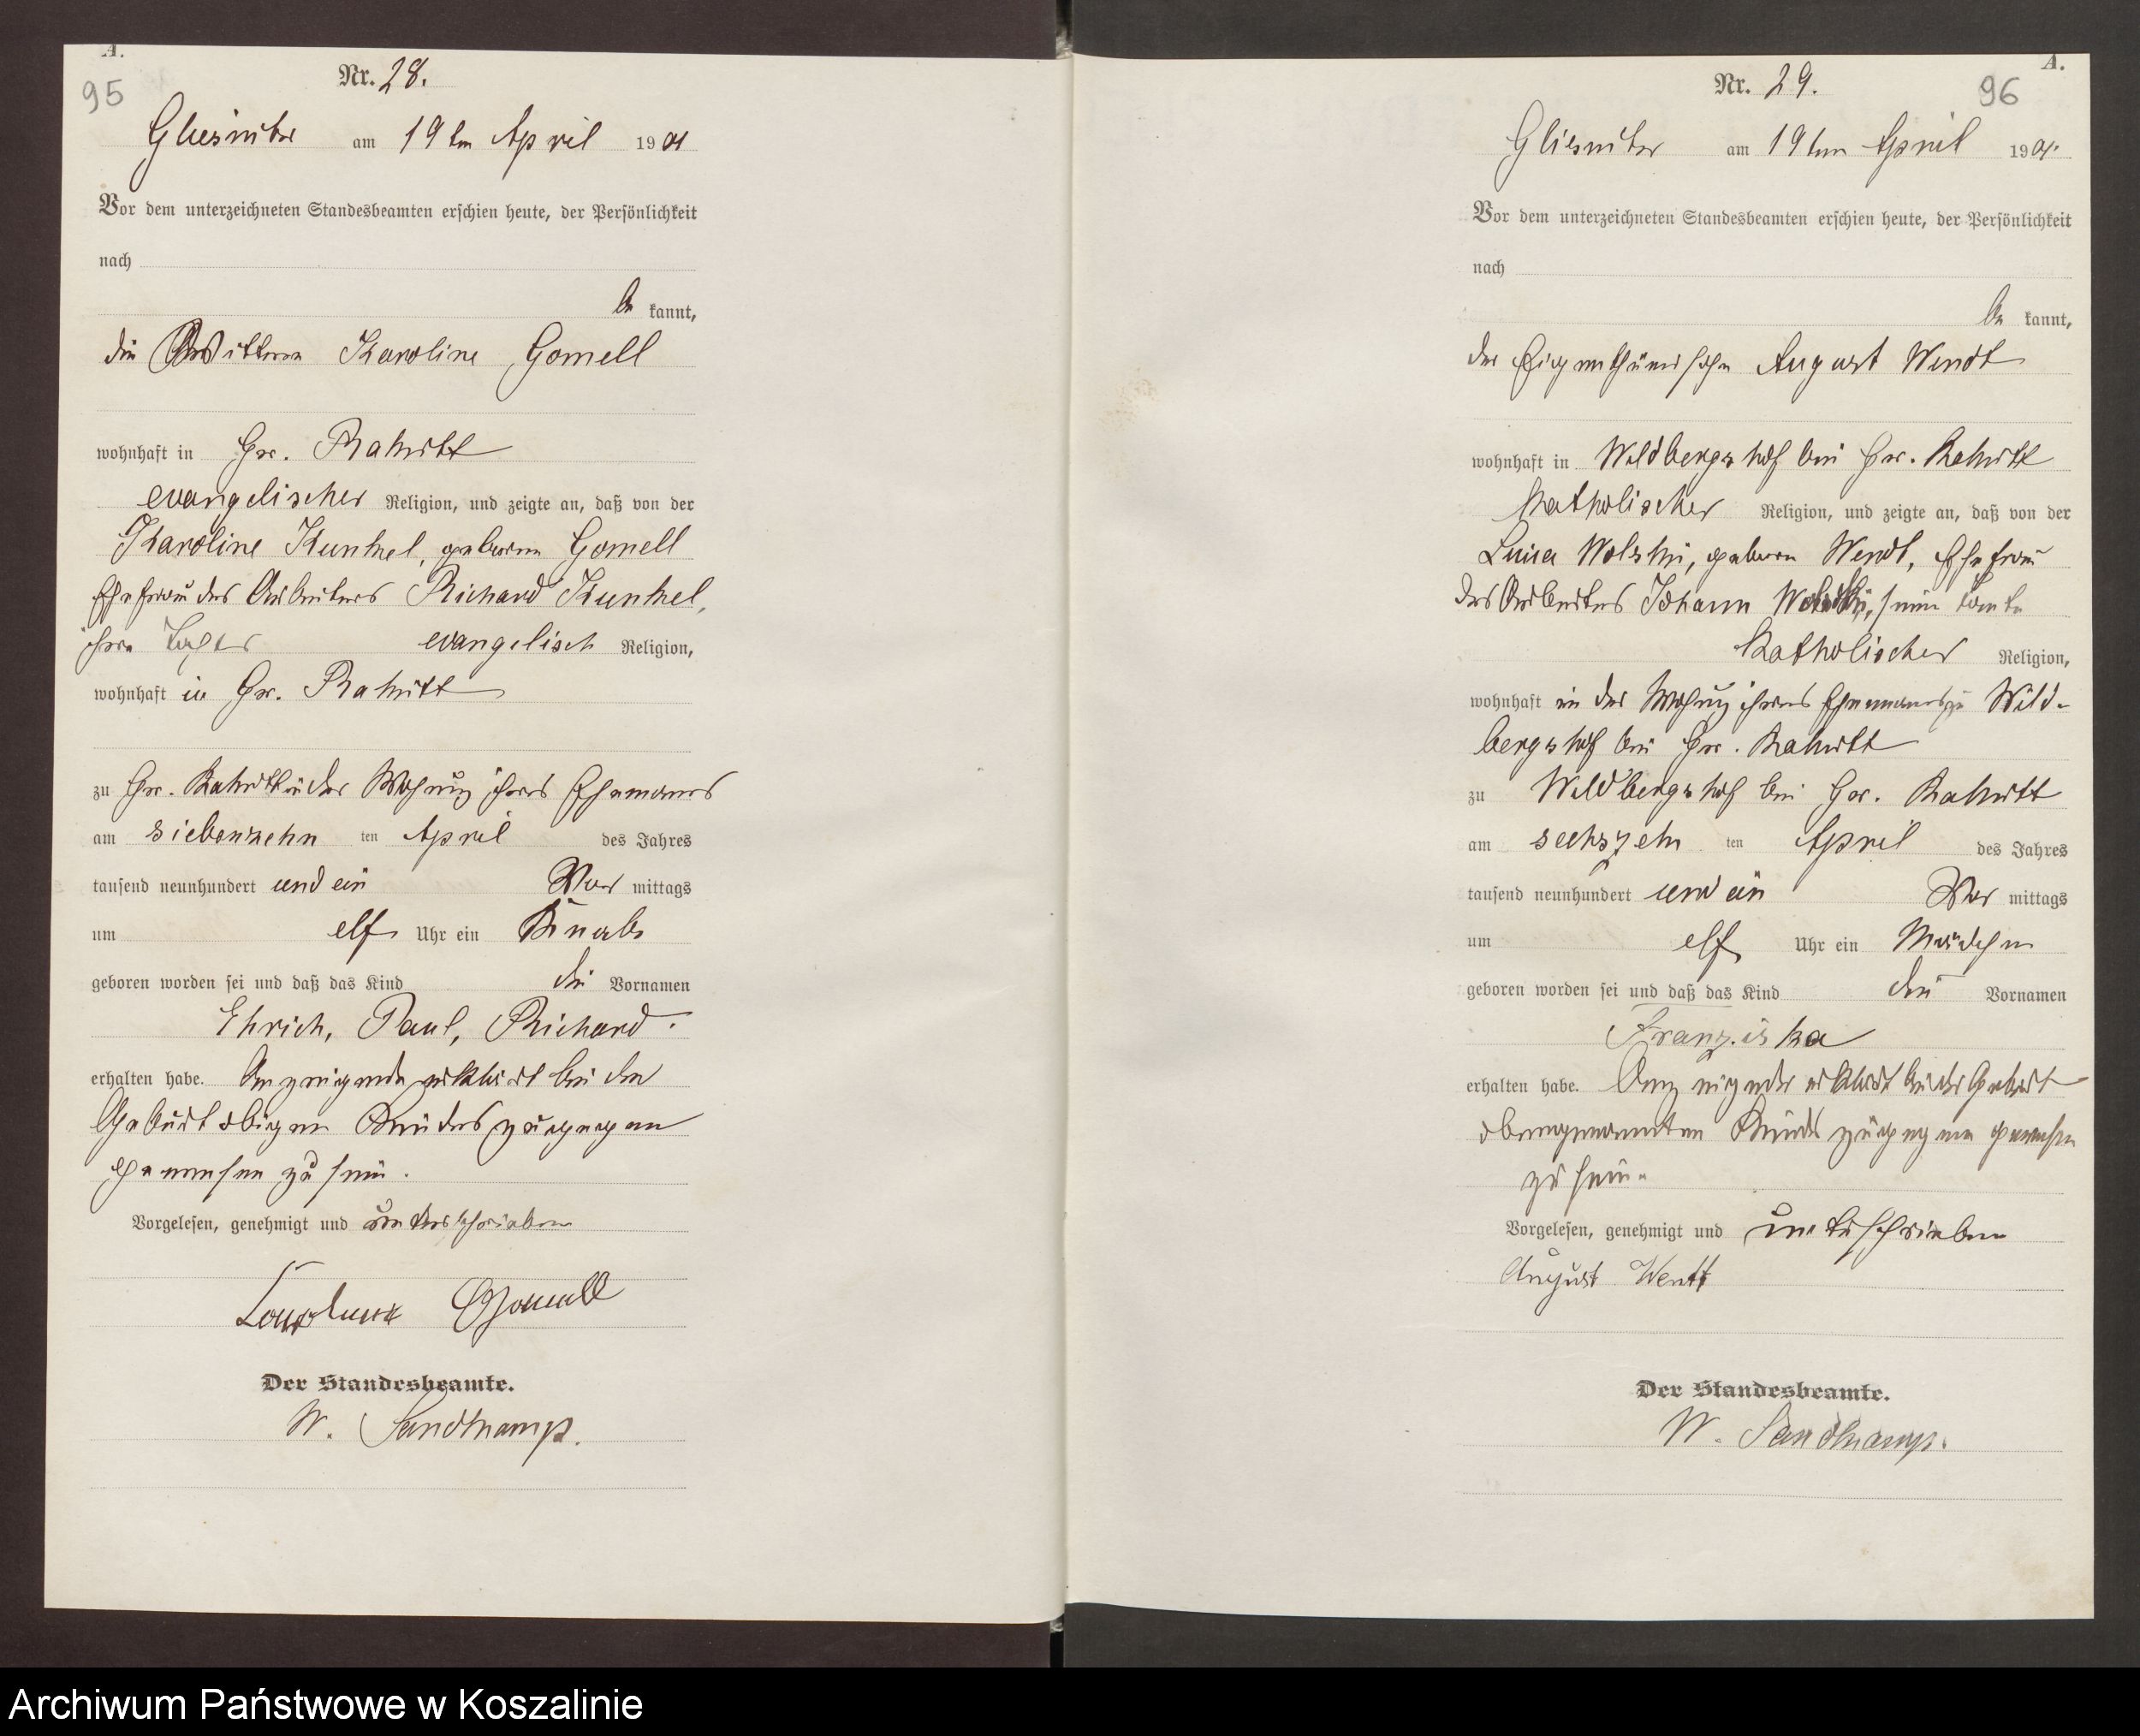 A.
95
Nr. 28.
Gliesnitz am 19ten April 1901
Vor dem unterzeichneten Standesbeamten erschien heute, der Persönlichkeit
nach
be kannt,
die Wittwe Karoline Gomell
wohnhaft in Gr.
evangelischer Religion, und zeigte an, daß von der
Karoline Kunkel, geborne Gomell
Ehefrau des Arbeiters Richard Kunkel,
ihre Tochter evangelisch Religion,
wohnhaft in Gr.
zu Gr. in der Wohnung ihres Ehemanns
am siebenzehn ten April des Jahres
tausend neunhundert und ein Vor mittags
um elf Uhr ein Knabe
geboren worden sei und daß das Kind die Vornamen
Ehrich, Paul, Richard.
erhalten habe. Anzeigende erklärt bei der
Geburt obigen Kindes zugegen
gewesen zu sein.
Vorgelesen, genehmigt und unterschrieben
Gomell
Der Standesbeamte.
W. Sandkamp.
A.
96
Nr. 29.
Gliesnitz am 19ten April 1901.
Vor dem unterzeichneten Standesbeamten erschien heute, der Persönlichkeit
nach
be kannt,
der Eigenthümersohn August Wendt
wohnhaft in Wildbergshof bei Gr.
katholischer Religion, und zeigte an, daß von der
Luisa Wolski, geborne Wendt, Ehefrau
des Arbeiters Johann Wolski, seine Tante
katholischer Religion,
wohnhaft in der Wohnung ihres Ehemanns zu Wild-
bergshof bei Gr.
zu Wildbergshof bei Gr.
am sechszehn ten April des Jahres
tausend neunhundert und ein Vor mittags
um elf Uhr ein Mädchen
geboren worden sei und daß das Kind den Vornamen
Franziska
erhalten habe. Anzeigender erklärt bei der Geburt
obengenannten Kindes zugegen gewesen
zu sein.
Vorgelesen, genehmigt und unterschrieben
August Wentt
Der Standesbeamte.
W. Sandkamp.
Archiwum Państwowe w Koszalinie